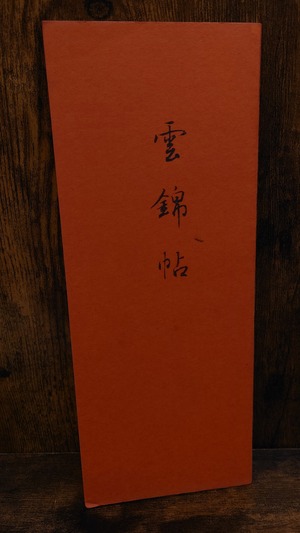 雲錦帖